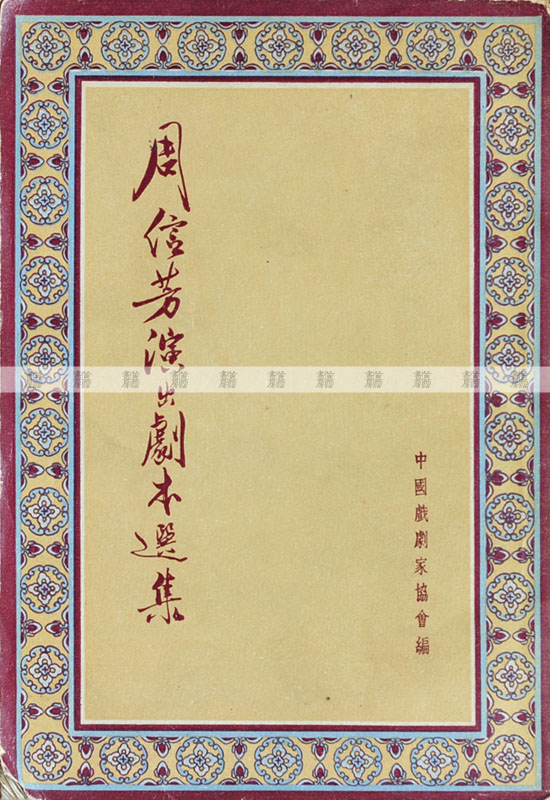 周信芳演出劇本選集
中國戲劇家協會編